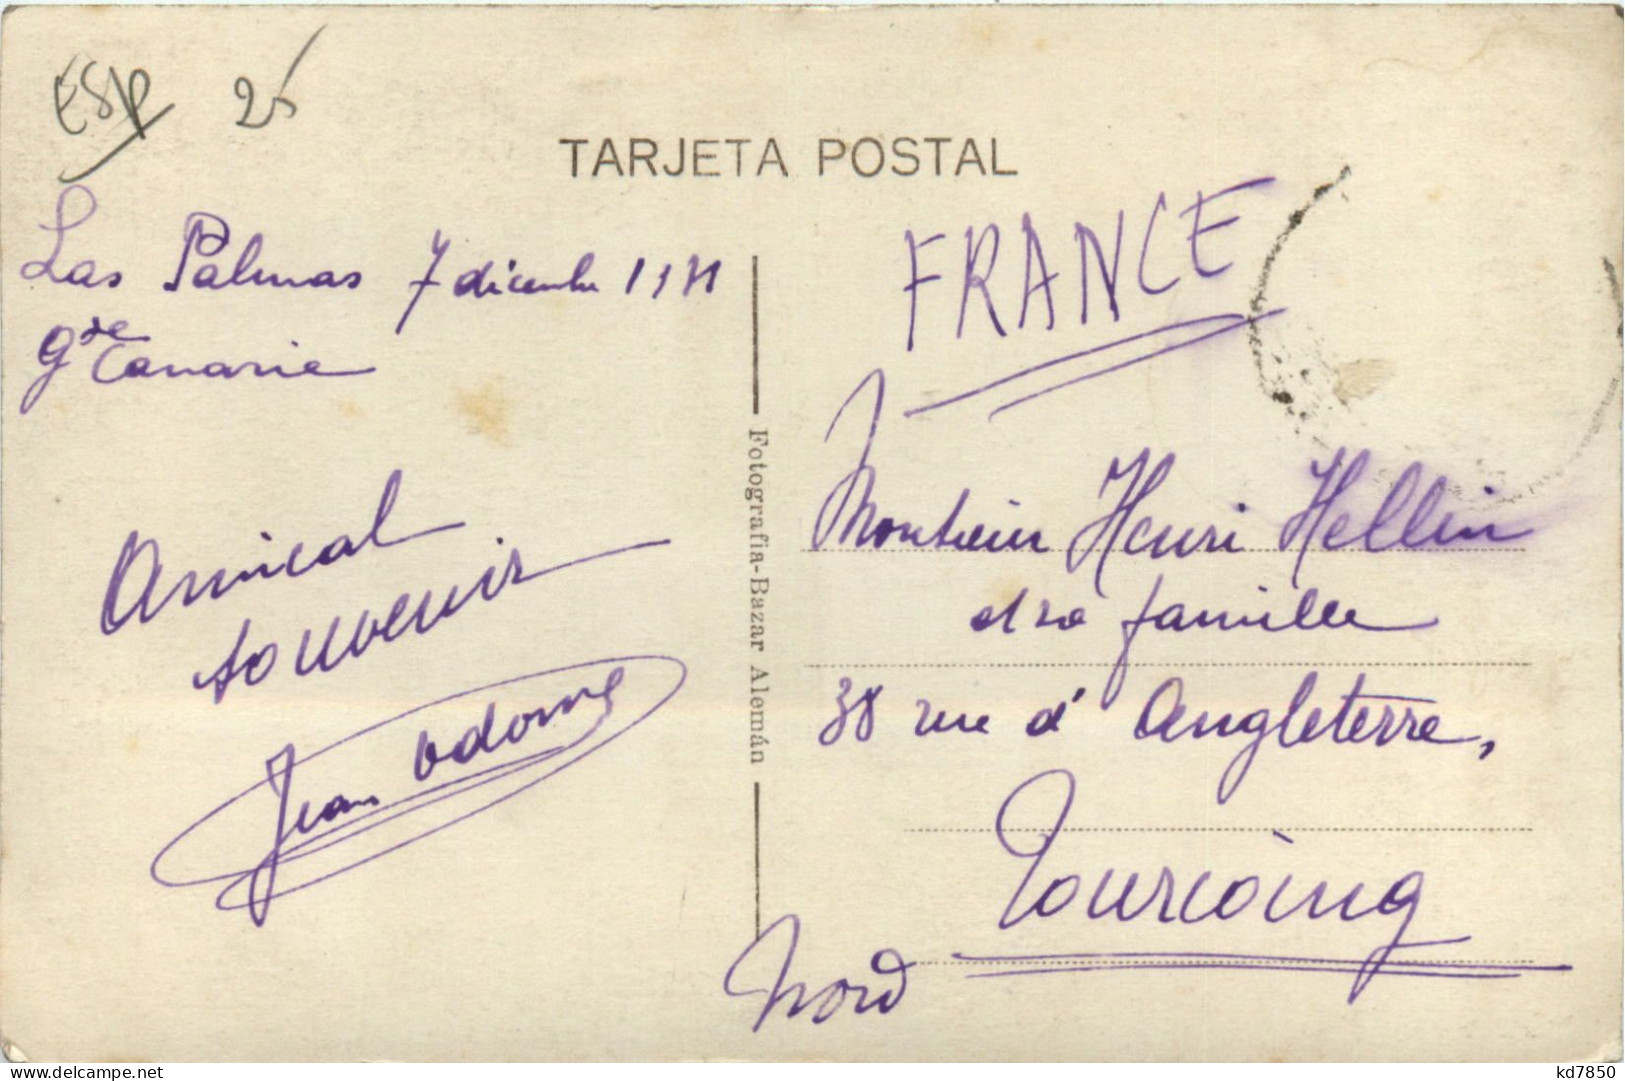 ESP 25
TARJETA POSTAL
Las Palmas 7 dicembre
Gde Canarie
Amical
souvenir
Jean
Fotografia-Bazar Alemán
FRANCE
Monsieur Henri Hellin
et sa famille
38 rue d'Angleterre,
Tourcoing
Nord
www.delcampe.net
kd7850